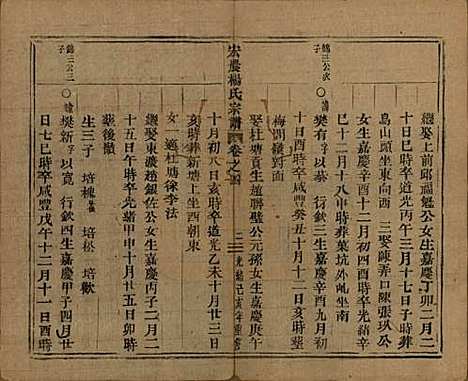 錦三公次子
繼娶上前邱福魁公女生嘉慶丁卯二月二
十日巳時卒道光丙午三月十七日子時葬
島山頭坐東向西 三娶陳弄口陳張玖公
女生嘉慶辛酉十二月初四酉時卒光緒辛
巳十二月十八戌時葬葉坑外岇坐南
○諱樊有 字以恭 行欽三生嘉慶辛酉九月初
十日酉時卒咸豐癸丑十月十二日亥時塟
梅閒嶺對面
娶杜塘貢生趙聯璧公元孫女生嘉慶庚午
宏農楊氏宗譜 卷之
二 光緒己亥年重修
十月初八日亥時卒道光乙未十月廿三日
亥時葬新塘上坐西朝東
女一適杜塘徐李法
繼娶東瀆趙銀佐公女生嘉慶丙子二月二
十五日戌時卒光緒甲申十月廿五日卯時
葬後墩
生三子 培棟 培松 培歡
錦三公三子
○諱樊新 字以寬 行欽四生嘉慶甲子四月廿
日七巳時卒咸豐戊午十二月十一日酉時